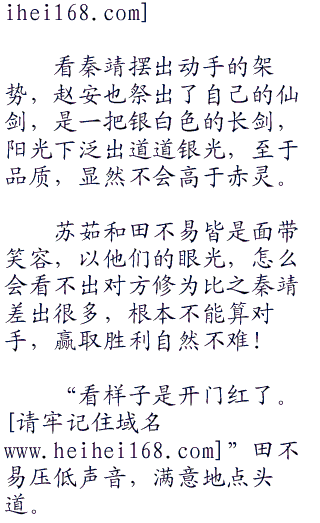 ihei168.com]
看秦靖摆出动手的架
势，赵安也祭出了自己的仙
剑，是一把银白色的长剑，
阳光下泛出道道银光，至于
品质，显然不会高于赤灵。
苏茹和田不易皆是面带
笑容，以他们的眼光，怎么
会看不出对方修为比之秦靖
差出很多，根本不能算对
手，赢取胜利自然不难！
“看样子是开门红了。
[请牢记住域名
www.heihei168.com]”田不
易压低声音，满意地点头
道。